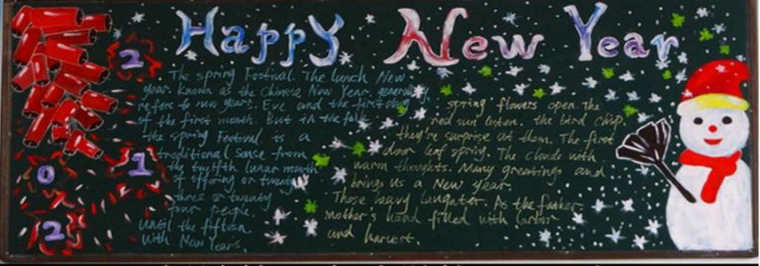 Happy New Year
2
0
1
2
The Spring Festival. The lunch New
year known as the Chinese New Year, generally
refers to new years. Eve and the first day
of the first month. But in the folk
the spring Festival is a
traditional Sense from
the twelfth lunar month
of offering or twenty
three or twenty
four people.
until the fifteen
With New Years.
spring flowers open. The
red sun listen. the bird chirp.
they're surprise at them. The first
door leaf spring. The clouds with
warm thoughts. Many greetings and
brings us a New year.
Those heavy laughter. As the father
mother's hand filled with
and harvest.